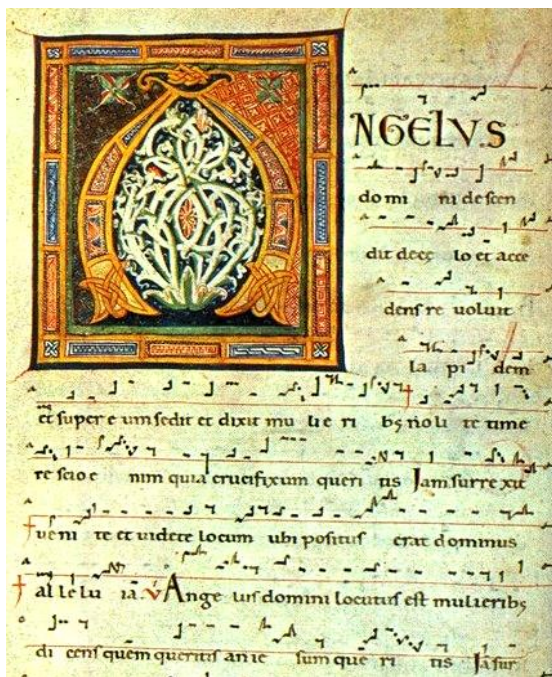 ANGELV.S
do mi ni de scen
dit decę lo et acce
dens re uoluit
la pi dem
et super e um sedit et dixit mu lie ri bꝫ no li te time
re scio e nim quia crucifixum queri tis Jam surre xit
ueni te et uidete locum ubi positus erat dominus
al le lu ia. V Ange lus domini locutus est mulieribꝫ
di cens quem queritis an ie sum que ri tis Ja sur